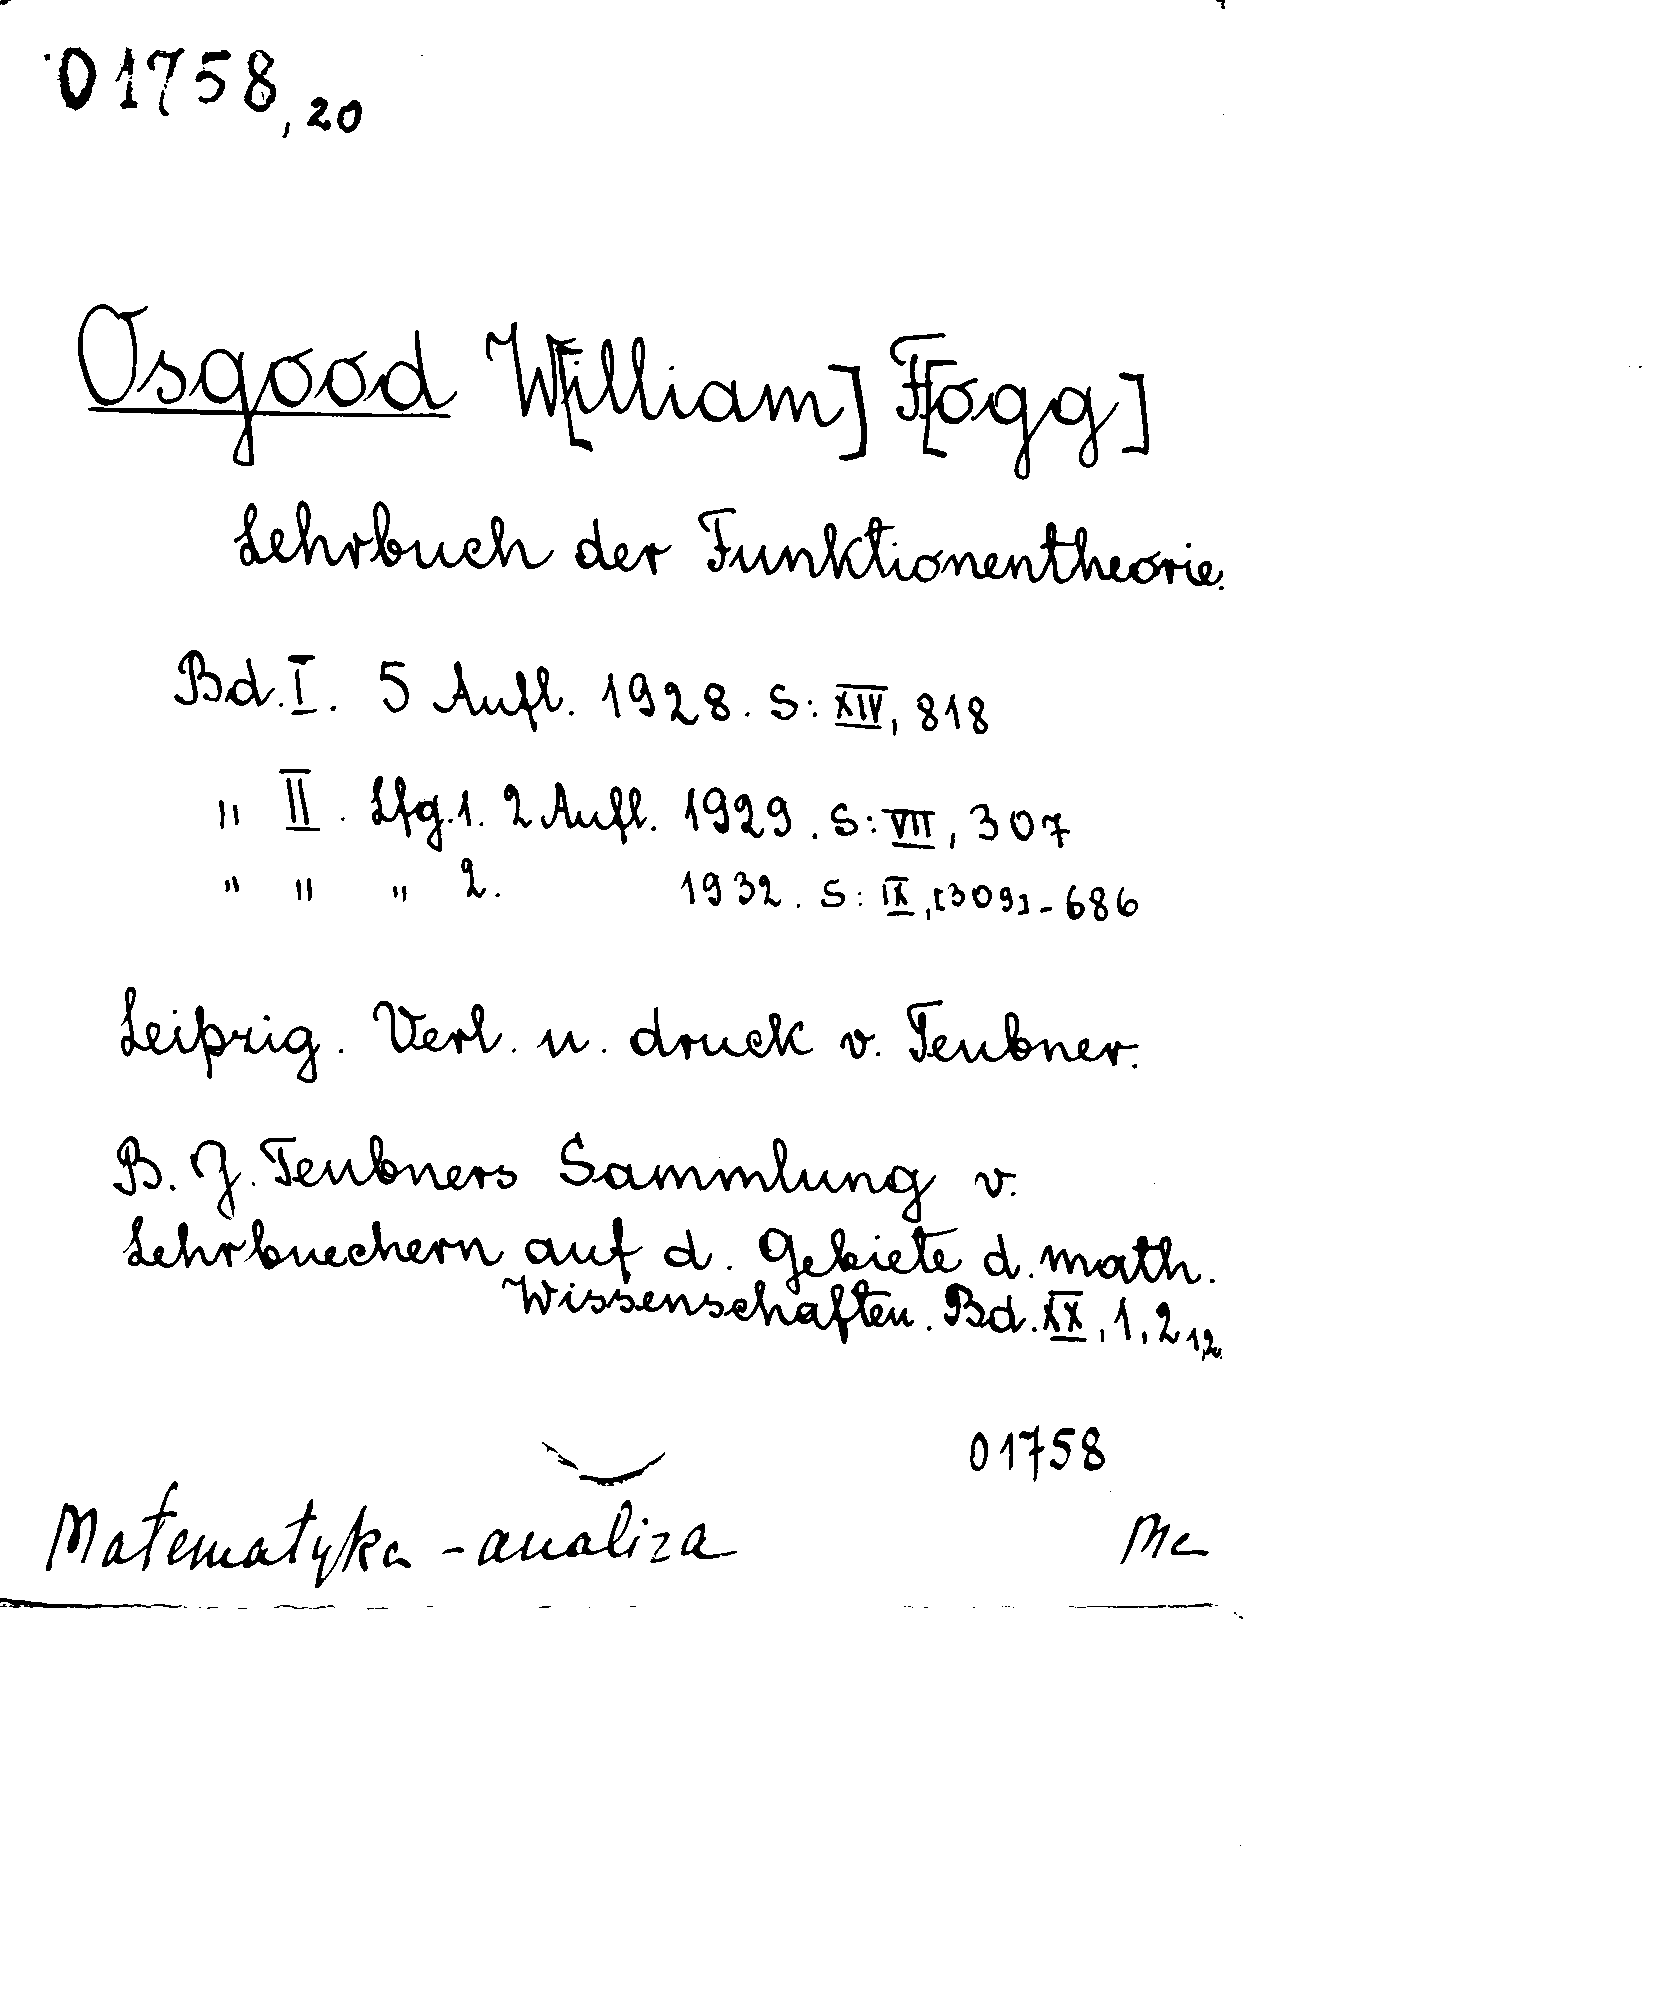 01758,20
Osgood W[illiam] F[ogg]
Lehrbuch der Funktionentheorie.
Bd. I. 5 Aufl. 1928. S: XIV, 818
" II. Lfg. 1. 2 Aufl. 1929. S: VII, 307
" " " 2. 1932. S: IX, [309]-686
Leipzig. Verl. u. druck v. Teubner.
B. J. Teubners Sammlung v.
Lehrbuechern auf d. Gebiete d. math.
Wissenschaften. Bd. XX, 1, 2 1,2.
01758
Matematyka - analiza